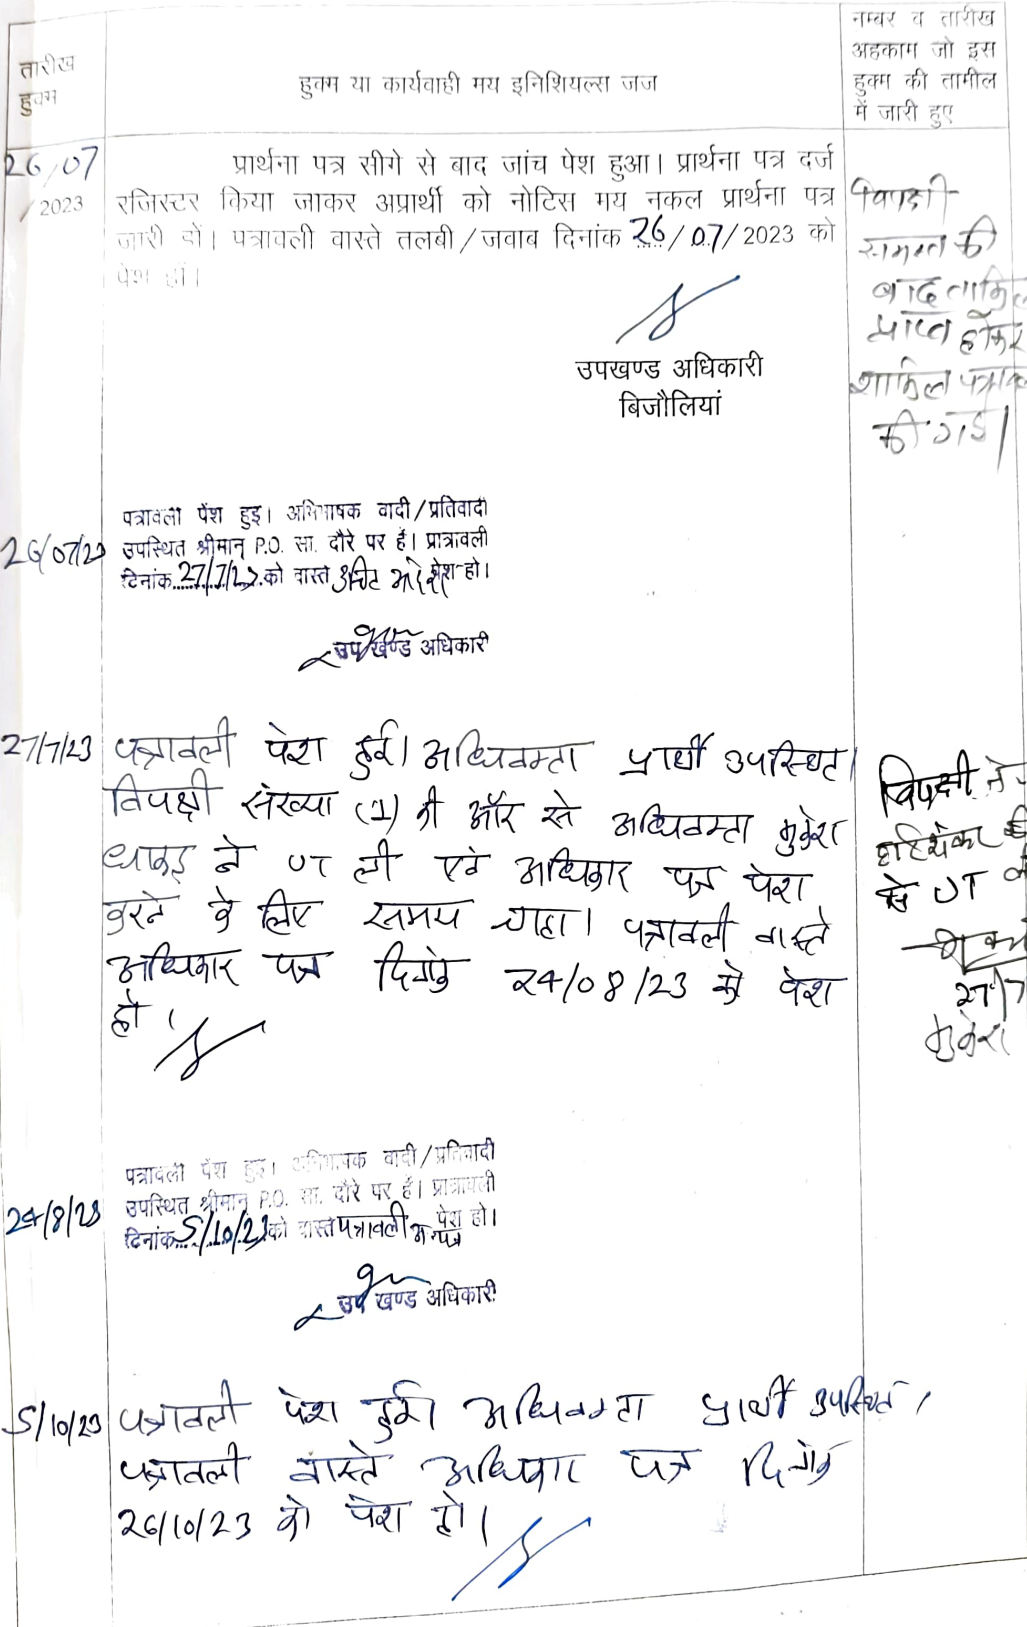 तारीख
हुक्म
हुक्म या कार्यवाही मय इनिशियल्स जज
नम्बर व तारीख
अहकाम जो इस
हुक्म की तामील
में जारी हुए
26/07
/2023
प्रार्थना पत्र सीगे से बाद जांच पेश हुआ। प्रार्थना पत्र दर्ज
रजिस्टर किया जाकर अप्रार्थी को नोटिस मय नकल प्रार्थना पत्र
जारी हो। पत्रावली वास्ते तलबी/जवाब दिनांक 26/07/2023 को
पेश हो।
उपखण्ड अधिकारी
बिजौलियां
विपक्षी
समस्त की
बाद तामिल
प्राप्त होकर
शामिल
की गई।
26/07/23
पत्रावली पेंश हुई। अभिभाषक वादी/प्रतिवादी
उपस्थित श्रीमान् P.O. सा. दौरे पर हैं। प्रात्रावली
दिनांक 27/7/23 को वास्ते उचित आदेश पेश हो।
उप खण्ड अधिकारी
27/7/23
पत्रावली पेश हुई। अधिवक्ता प्रार्थी उपस्थित।
विपक्षी संख्या (1) की ओर से अधिवक्ता मुकेश
धाकड़ ने UT ली एवं अधिकार पत्र पेश
करने के लिए समय चाहा। पत्रावली वास्ते
अधिकार पत्र दिनांक 24/08/23 को पेश
हो।
विपक्षी
से UT
27/7
मुकेश
24/8/23
पत्रावली पेंश हुई। अभिभाषक वादी/प्रतिवादी
उपस्थित श्रीमान् P.O. सा. दौरे पर हैं। प्रात्रावली
दिनांक 5/10/23 को वास्ते पत्रावली पेश हो।
उप खण्ड अधिकारी
5/10/23
पत्रावली पेश हुई। अधिवक्ता प्रार्थी उपस्थित।
पत्रावली वास्ते अधिकार पत्र दिनांक
26/10/23 को पेश हो।